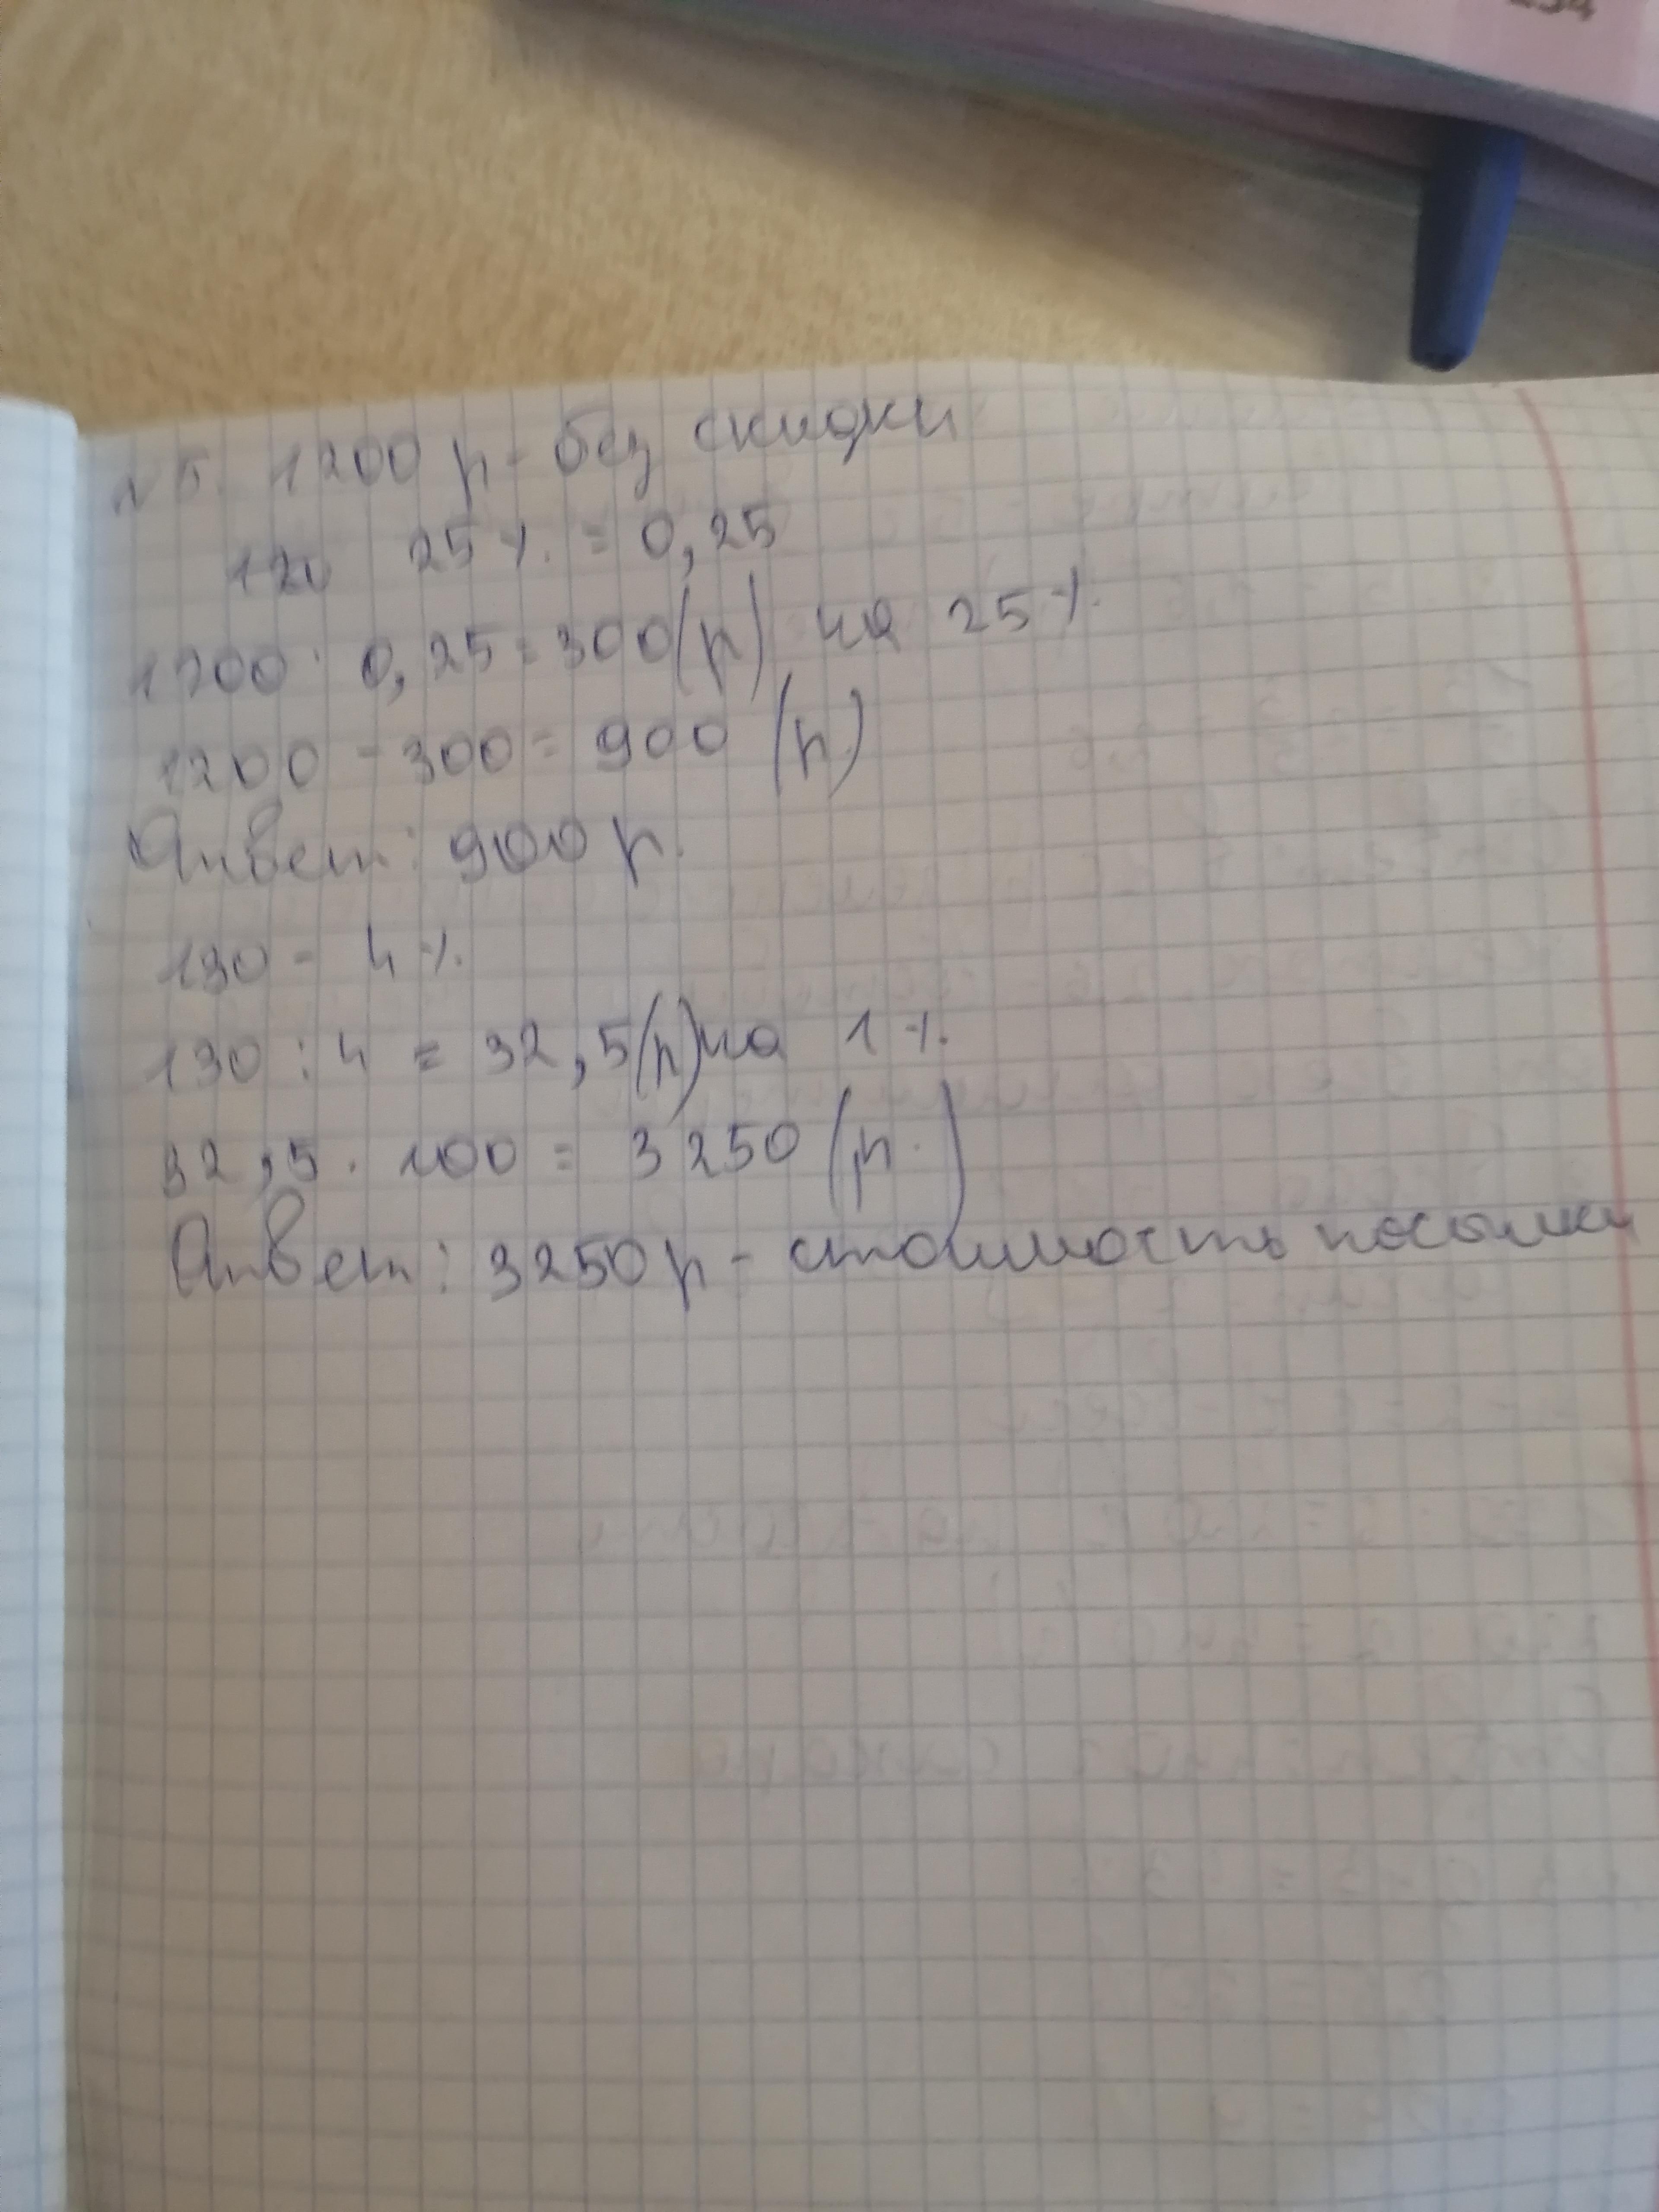 №5. 1200 р - без скидки
120 25% = 0,25
1200 · 0,25 = 300(р) на 25%
1200 - 300 = 900 (р.)
Ответ: 900 р.
130 - 4%
130 : 4 = 32,5(р) на 1%
32,5 · 100 = 3250 (р.)
Ответ: 3250 р - стоимость посылки